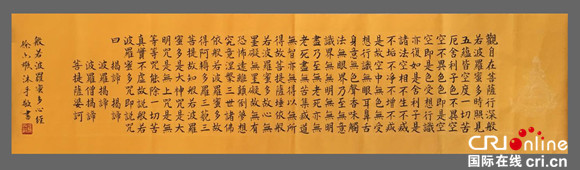 觀自在菩薩行深般
若波羅蜜多時照見
五蘊皆空度一切苦
厄舍利子色不異空
空不異色色即是空
空即是色受想行識
亦復如是舍利子是
諸法空相不生不滅
不垢不淨不增不減
是故空中無色無受
想行識無眼耳鼻舌
身意無色聲香味觸
法無眼界乃至無意
識界無無明亦無無明
盡乃至無老死亦無
老死盡無苦集滅道
無智亦無得以無所
得故菩提薩埵依般
若波羅蜜多故心無
罣礙無罣礙故無有
恐怖遠離顛倒夢想
究竟涅槃三世諸佛
依般若波羅蜜多故
得阿耨多羅三藐三
菩提故知般若波羅
蜜多是大神咒是大
明咒是無上咒是無
等等咒能除一切苦
真實不虛故說般若
波羅蜜多咒即說咒
曰 揭諦 揭諦
波羅揭諦
波羅僧揭諦
菩提薩婆訶
般若波羅蜜多心經
沐手敬書
CRIOnline
国际在线 cri.cn